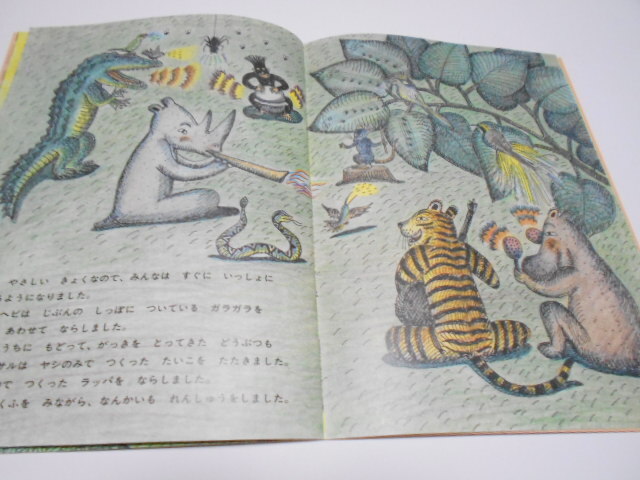 やさしい きょくなので、みんなは すぐに いっしょに
るようになりました。
ヘビは じぶんの しっぽに ついている ガラガラを
あわせて ならしました。
うちに もどって、がっきを とってきた どうぶつも
サルは ヤシのみで つくった たいこを たたきました。
つくった ラッパを ならしました。
くふを みながら、なんかいも れんしゅうをしました。